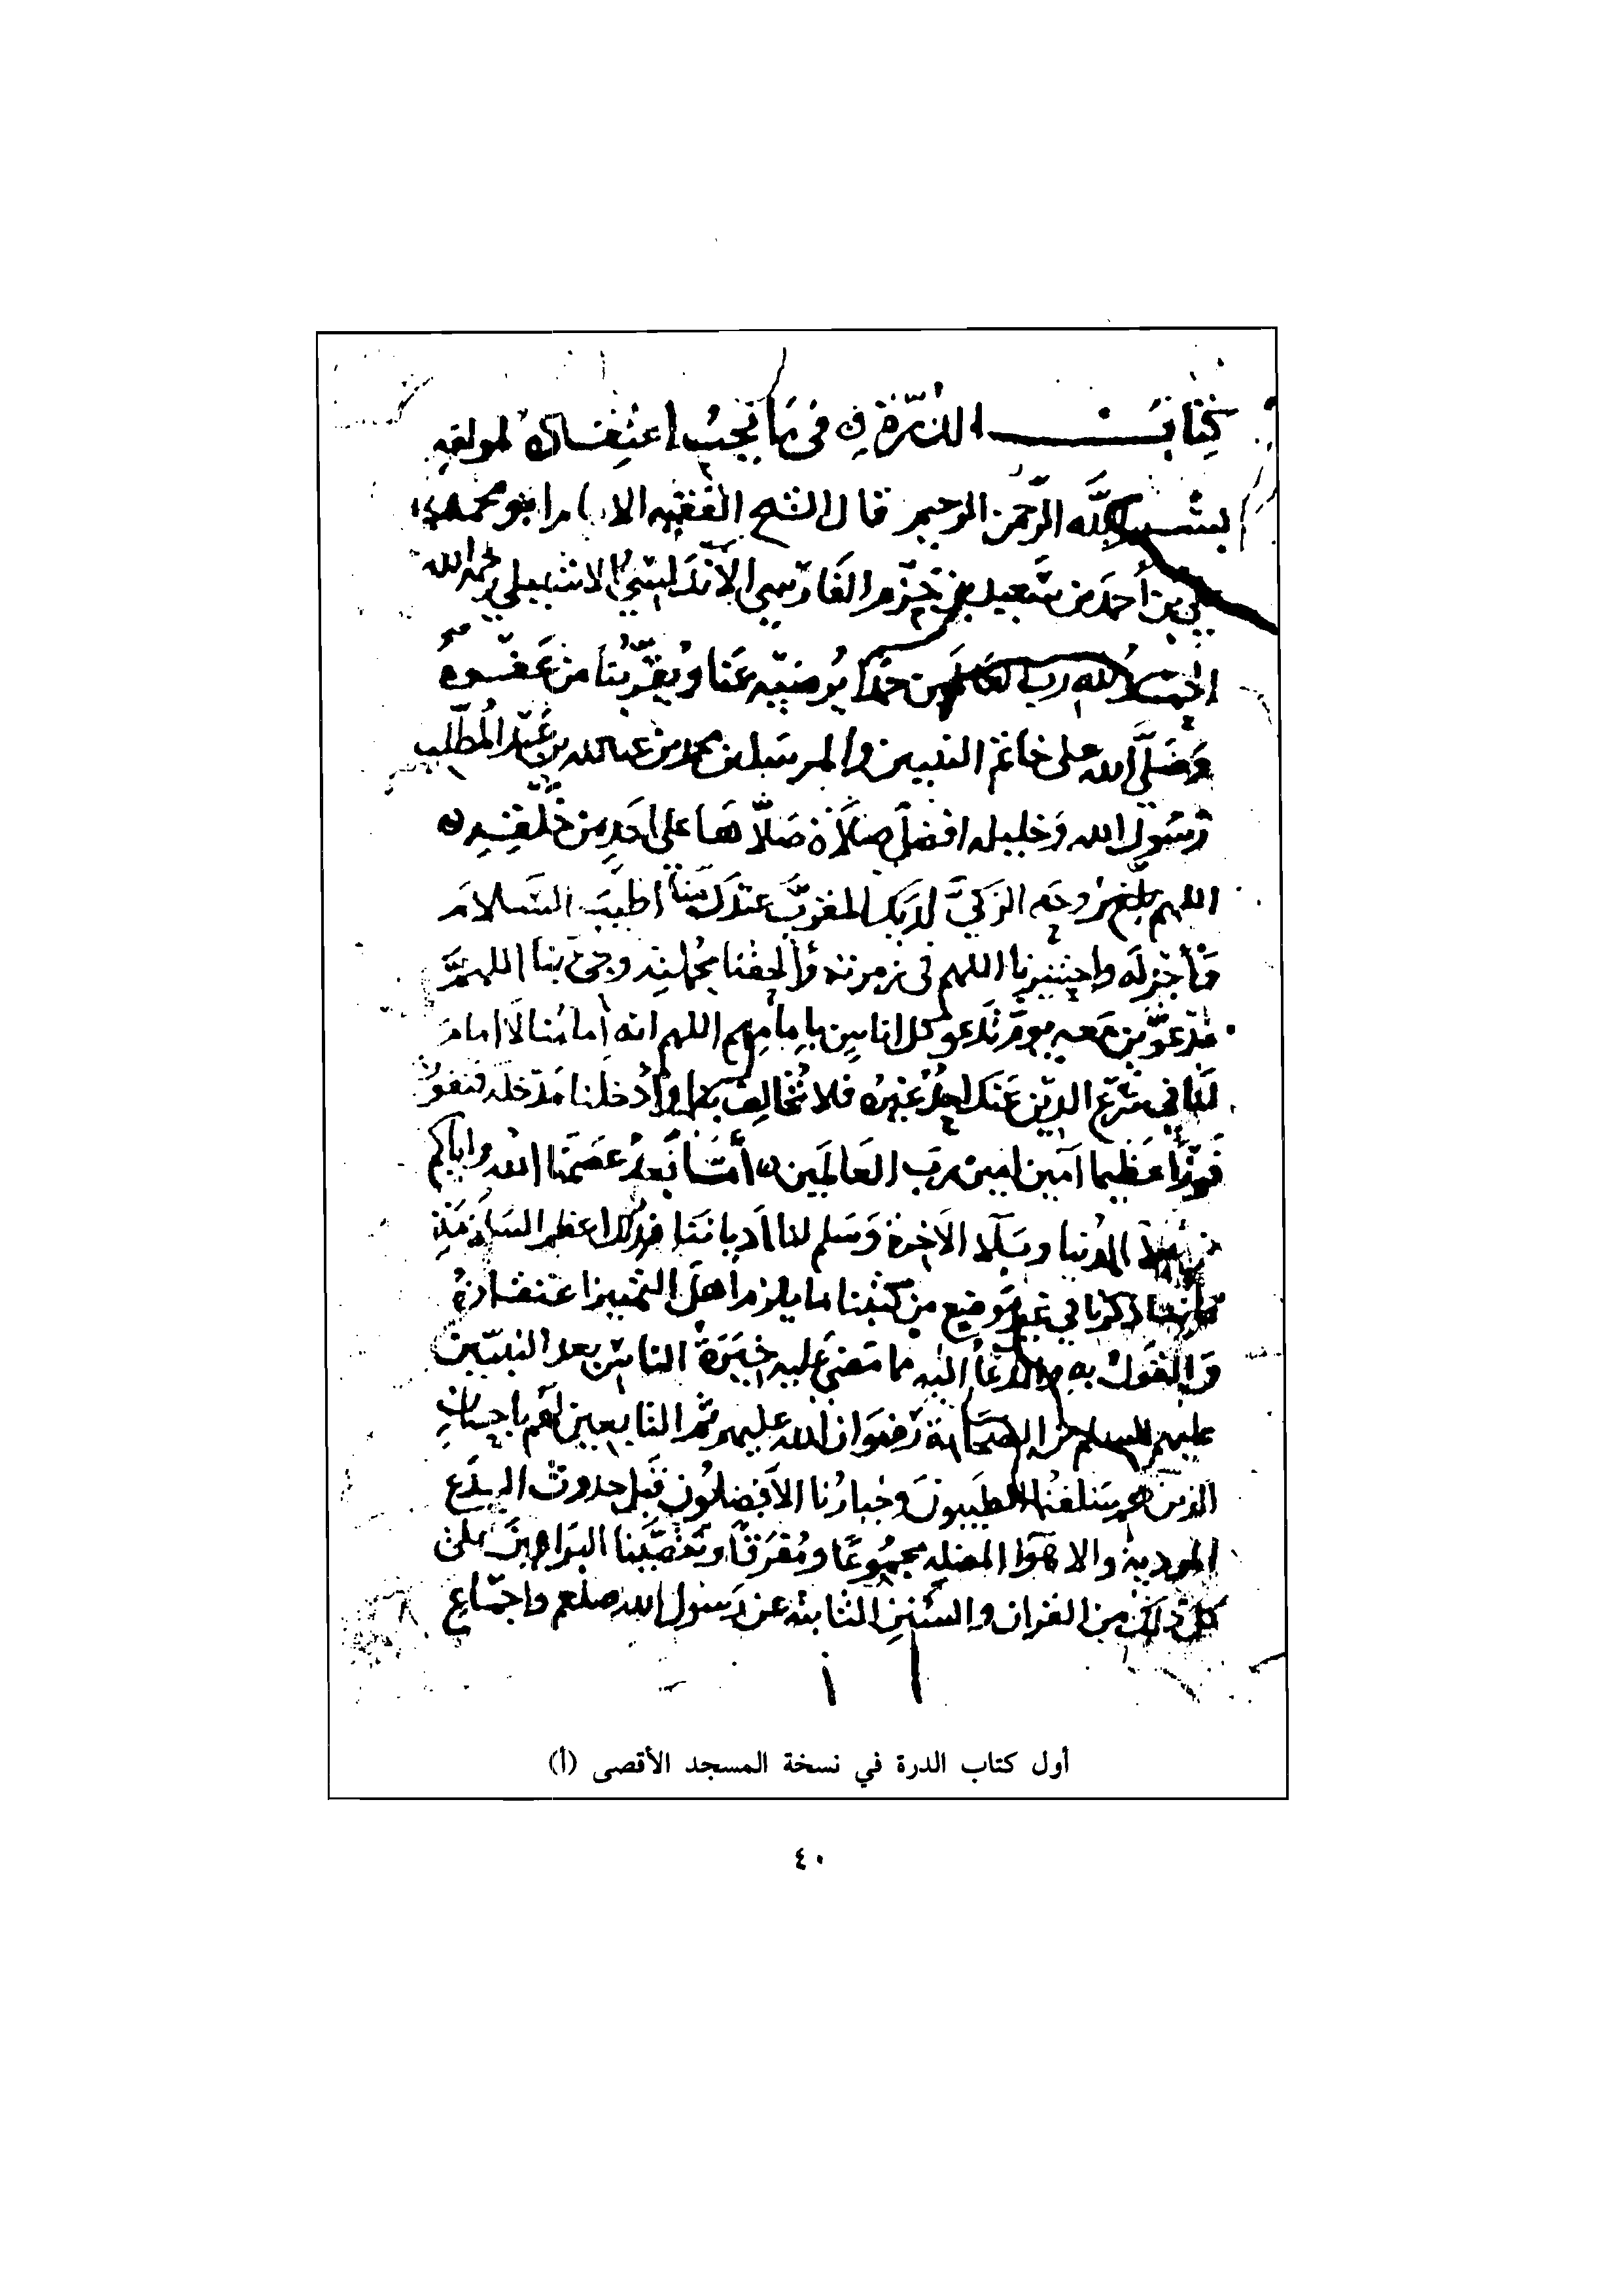 كتاب الدرة في ما يجب اعتقاده لمولفه
بسم الله الرحمن الرحيم قال الشيخ الفقيه الامام ابو محمد
علي بن أحمد بن سعيد بن حزم الفارسي الأندلسي الاشبيلي رحمه الله
الحمد لله رب العالمين حمدا يرضيه عنا ويقربنا من عفوه
وصلى الله على خاتم النبيين والمرسلين محمد بن عبد الله بن عبد المطلب
رسول الله وخليله افضل صلاة صلاها على احد من خلقه
اللهم بلغ روحه الزكي لديك المقرب عندك منا اطيب السلام
وأجزله واحشرنا اللهم في زمرته وألحقنا بجملته وجئ بنا اللهم
مدعوين معه يوم تدعو كل اناس بإمامهم اللهم انه إمامنا لا امام
لنا في شرع الدين عندك احد غيره فلا تخالف بنا وأدخلنا مدخله فنفوز
فوزا عظيما آمين امين رب العالمين أما بعد عصمنا الله واياكم
من الدنيا وبلا الآخرة وسلم لنا أدياننا فذلك اعظم السلامة
فإننا ذكرنا في غير موضع من كتبنا ما يلزم أهل التمييز اعتقاده
والقول به والدعا اليه مما مضى عليه خيرة الناس بعد النبيين
عليهم السلام من الصحابة رضوان الله عليهم ثم التابعين لهم باحسان
الذين هم سلفنا الطيبون وخيارنا الأفضلون قبل حدوث البدع
المردية والاهوا المضله مجموعا ومفرقا وتقصينا البراهين على
كل ذلك من القران والسنن الثابتة عن رسول الله صلعم واجماع
أول كتاب الدرة في نسخة المسجد الأقصى (أ)
٤٠